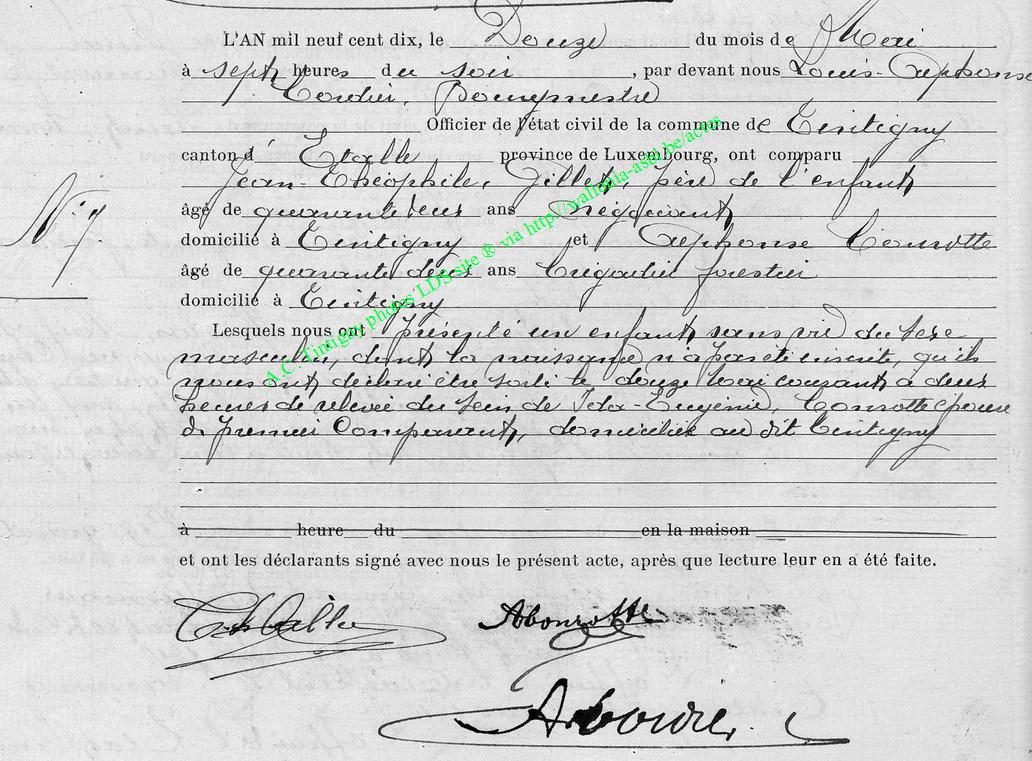 L'AN mil neuf cent dix, le Douze du mois de Mai
à sept heures du soir, par devant nous Louis-Alphonse
Cordier, Bourgmestre
Officier de l'état civil de la commune de Tintigny
canton d' Etalle province de Luxembourg, ont comparu
Jean-Théophile, Gillet, père de l'enfant
N° 7
âgé de quarante deux ans Négociant
domicilié à Tintigny et Alphonse
âgé de quarante deux ans brigadier forestier
domicilié à Tintigny
Lesquels nous ont présenté un enfant sans vie du sexe
masculin, dont la naissance n'a pas été inscrite, qu'ils
nous ont déclaré être sorti le douze Mai courant à deux
heures de relevée du sein de Ida-Eugénie, épouse
du premier Comparant, domiciliée au dit Tintigny
à heure du en la maison
et ont les déclarants signé avec nous le présent acte, après que lecture leur en a été faite.
A.C. Tintigny photos LDS site ® via http://wallonia-asbl.be/actes